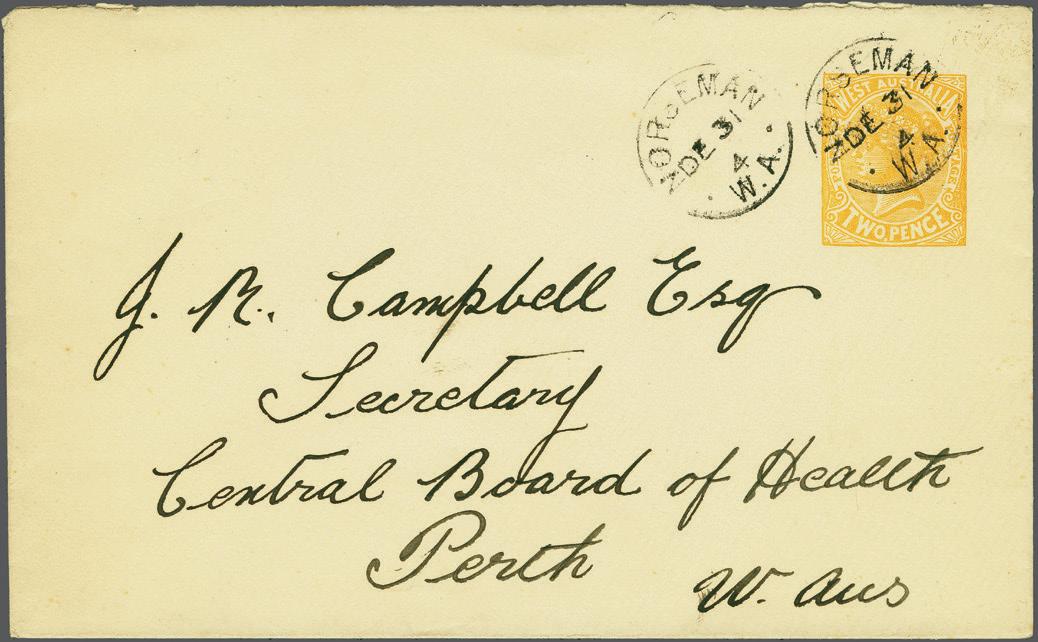 NORSEMAN
DE 31
4
W.A.
NORSEMAN
DE 31
4
W.A.
WEST AUSTRALIA
TWO PENCE
J. R. Campbell Esq
Secretary
Central Board of Health
Perth
W. Aus